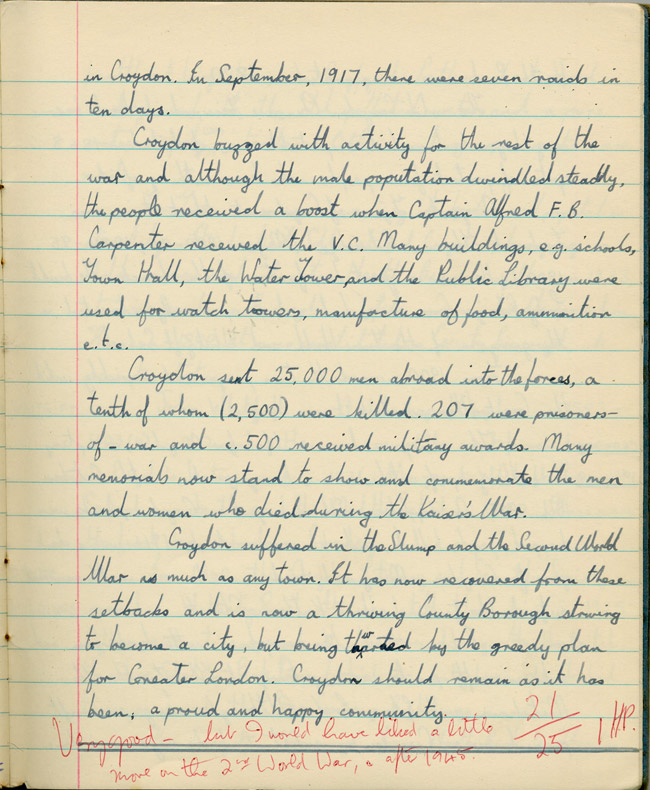 in Croydon. In September, 1917, there were seven raids in
ten days.
Croydon buzzed with activity for the rest of the
war and although the male population dwindled steadily,
the people received a boost when Captain Alfred F.B.
Carpenter received the V.C. Many buildings, e.g. schools,
Town Hall, the Water Tower, and the Public Library were
used for watch towers, manufacture of food, ammunition
e.t.c.
Croydon sent 25,000 men abroad into the forces, a
tenth of whom (2,500) were killed. 207 were prisoners-
of-war and c.500 received military awards. Many
memorials now stand to show and commemorate the men
and women who died during the Kaiser's War.
Croydon suffered in the Slump and the Second World
War as much as any town. It has now recovered from these
setbacks and is now a thriving County Borough striving
to become a city, but being thwarted by the greedy plan
for Greater London. Croydon should remain as it has
been; a proud and happy community.
Very good - but I would have liked a little
more on the 2nd World War, & after 1945.
21/25 1 HP.